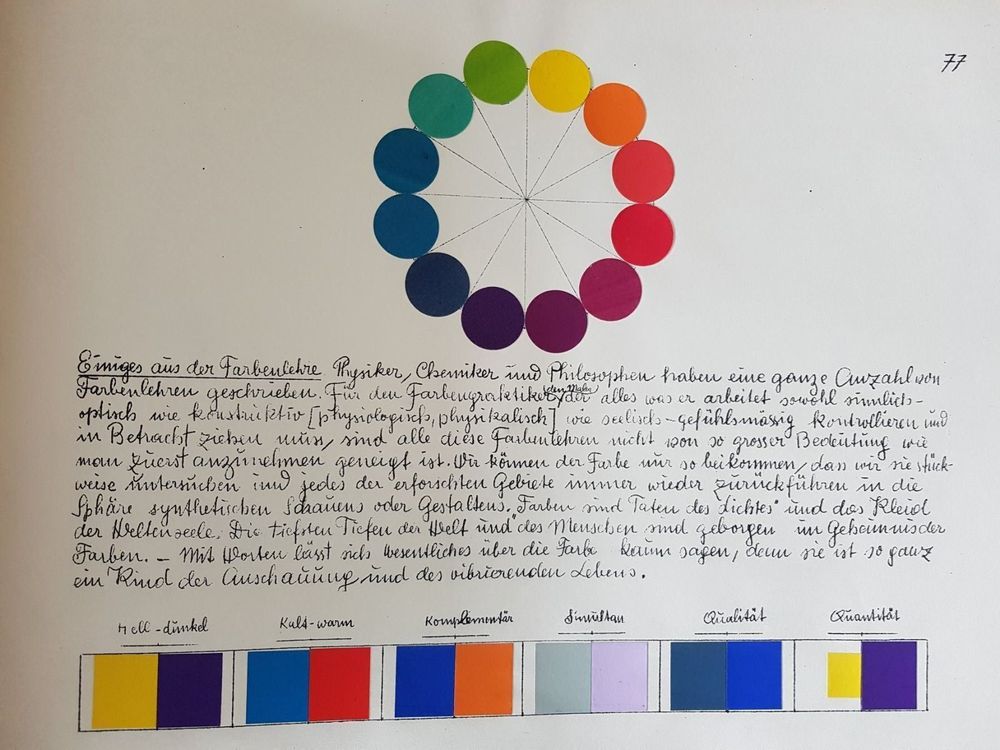 77
Einiges aus der Farbenlehre Physiker, Chemiker und Philosophen haben eine ganze Anzahl von
Farbenlehren geschrieben. Für den Farbenpraktiker, der alles was er arbeitet sowohl sinnlich-
optisch wie konstruktiv [physiologisch, physikalisch] wie seelisch-gefühlsmässig kontrollieren und
in Betracht ziehen muss, sind alle diese Farbenlehren nicht von so grosser Bedeutung wie
man zuerst anzunehmen geneigt ist. Wir können der Farbe nur so beikommen, dass wir sie stück-
weise untersuchen und jedes der erforschten Gebiete immer wieder zurückführen in die
Sphäre synthetischen Schauens oder Gestaltens. "Farben sind Taten des Lichtes" und das Kleid
der Weltenseele. Die tiefsten Tiefen der Welt und des Menschen sind geborgen im Geheimnis der
Farben. – Mit Worten lässt sich wesentliches über die Farbe kaum sagen, denn sie ist so ganz
ein Kind der Anschauung und des vibrierenden Lebens.
Hell-dunkel Kalt-warm Komplementär Simultan Qualität Quantität